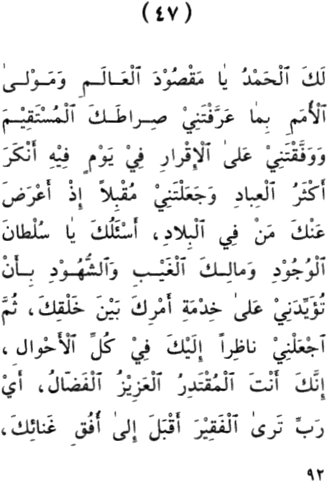 (٤٧)
لَكَ ٱلْحَمْدُ يٰا مَقْصُوْدَ ٱلْعٰالَمِ وَمَوْلىٰ
ٱلْأُمَمِ بِمٰا عَرَّفْتَنِيْ صِراطَكَ ٱلْمُسْتَقِيْمَ
وَوَفَّقْتَنِيْ عَلىٰ ٱلْإِقْرارِ فِيْ يَوْمٍ فِيْهِ أَنْكَرَ
أَكْثَرُ ٱلْعِبادِ وَجَعَلْتَنِيْ مُقْبِلاً إِذْ أَعْرَضَ
عَنْكَ مَنْ فِي ٱلْبِلادِ، أَسْئَلُكَ يٰا سُلْطانَ
ٱلْوُجُوْدِ وَمالِكَ ٱلْغَيْبِ وَٱلشُّهُوْدِ بِأَنْ
تُؤَيِّدَنِيْ عَلىٰ خِدْمَةِ أَمْرِكَ بَيْنَ خَلْقِكَ، ثُمَّ
ٱجْعَلْنِيْ ناظِراً إِلَيْكَ فِيْ كُلِّ ٱلْأَحْوالِ،
إِنَّكَ أَنْتَ ٱلْمُقْتَدِرُ ٱلْعَزِيْزُ ٱلْفَضّالُ، أَيْ
رَبِّ تَرىٰ ٱلْفَقِيْرَ أَقْبَلَ إِلىٰ أُفُقِ غَنائِكَ،
٩٢